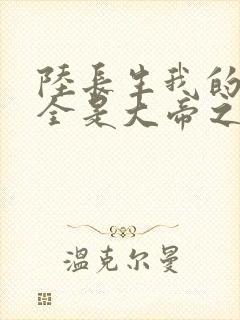 陸長生我的
全是大帝之
温克尔曼